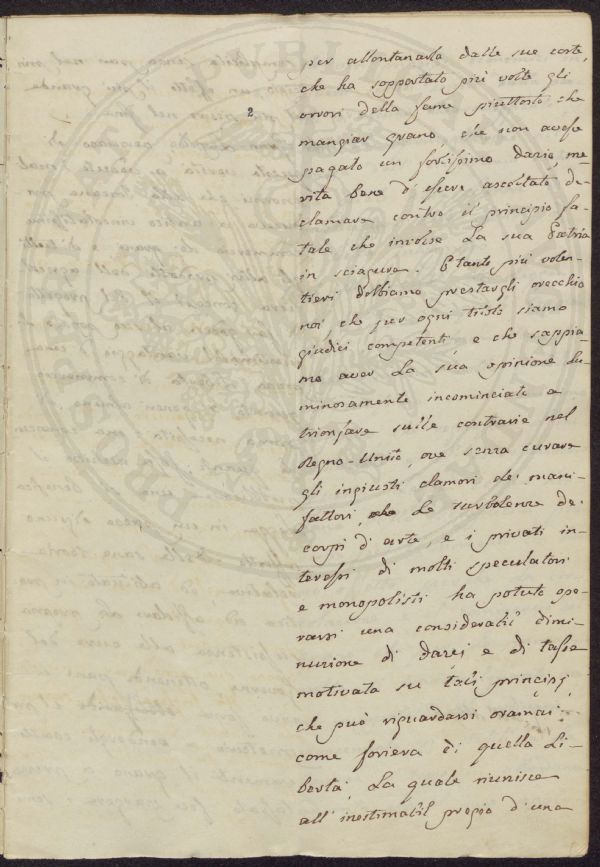 2
per allontanarlo dalle sue corte,
che ha sopportato più volte gli
orrori della fame piuttosto che
mangiar grano che non avesse
pagato un fortissimo dazio, me-
rita bene d'essere ascoltato de-
clamare contro il principio fa-
tale che involse la sua Patria
in sciagure. E tanto più volen-
tieri dobbiamo prestargli orecchio
noi, che per ogni titolo siamo
giudici competenti e che sappia-
mo aver la sua opinione lu-
minosamente incominciato a
trionfare sulle contrarie nel
Regno-Unito, ove senza curare
gli ingiusti clamori de' mani-
fattori, le turbolenze de'
corpi d'arte, e i privati in-
teressi di molti speculatori
e monopolisti ha potuto ope-
rarsi una considerabil dimi-
nuzione di dazj e di tasse
motivata su tali principj,
che può riguardarsi oramai
come foriera di quella Li-
bertà, la quale riunisce
all'inestimabil pregio d'una